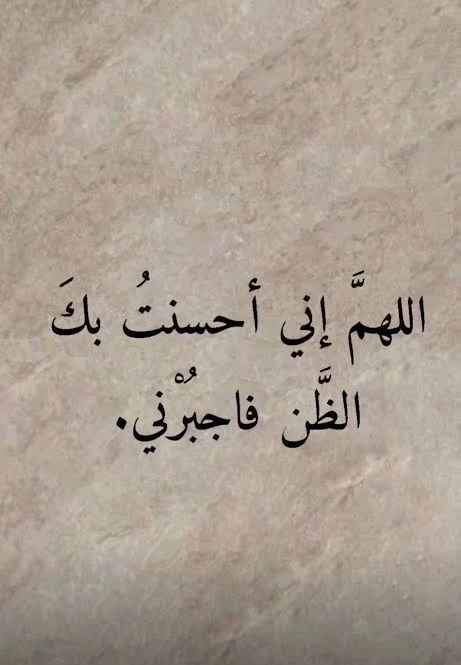 اللهمَّ إني أحسنتُ بكَ
الظَّن فاجبُرْني.